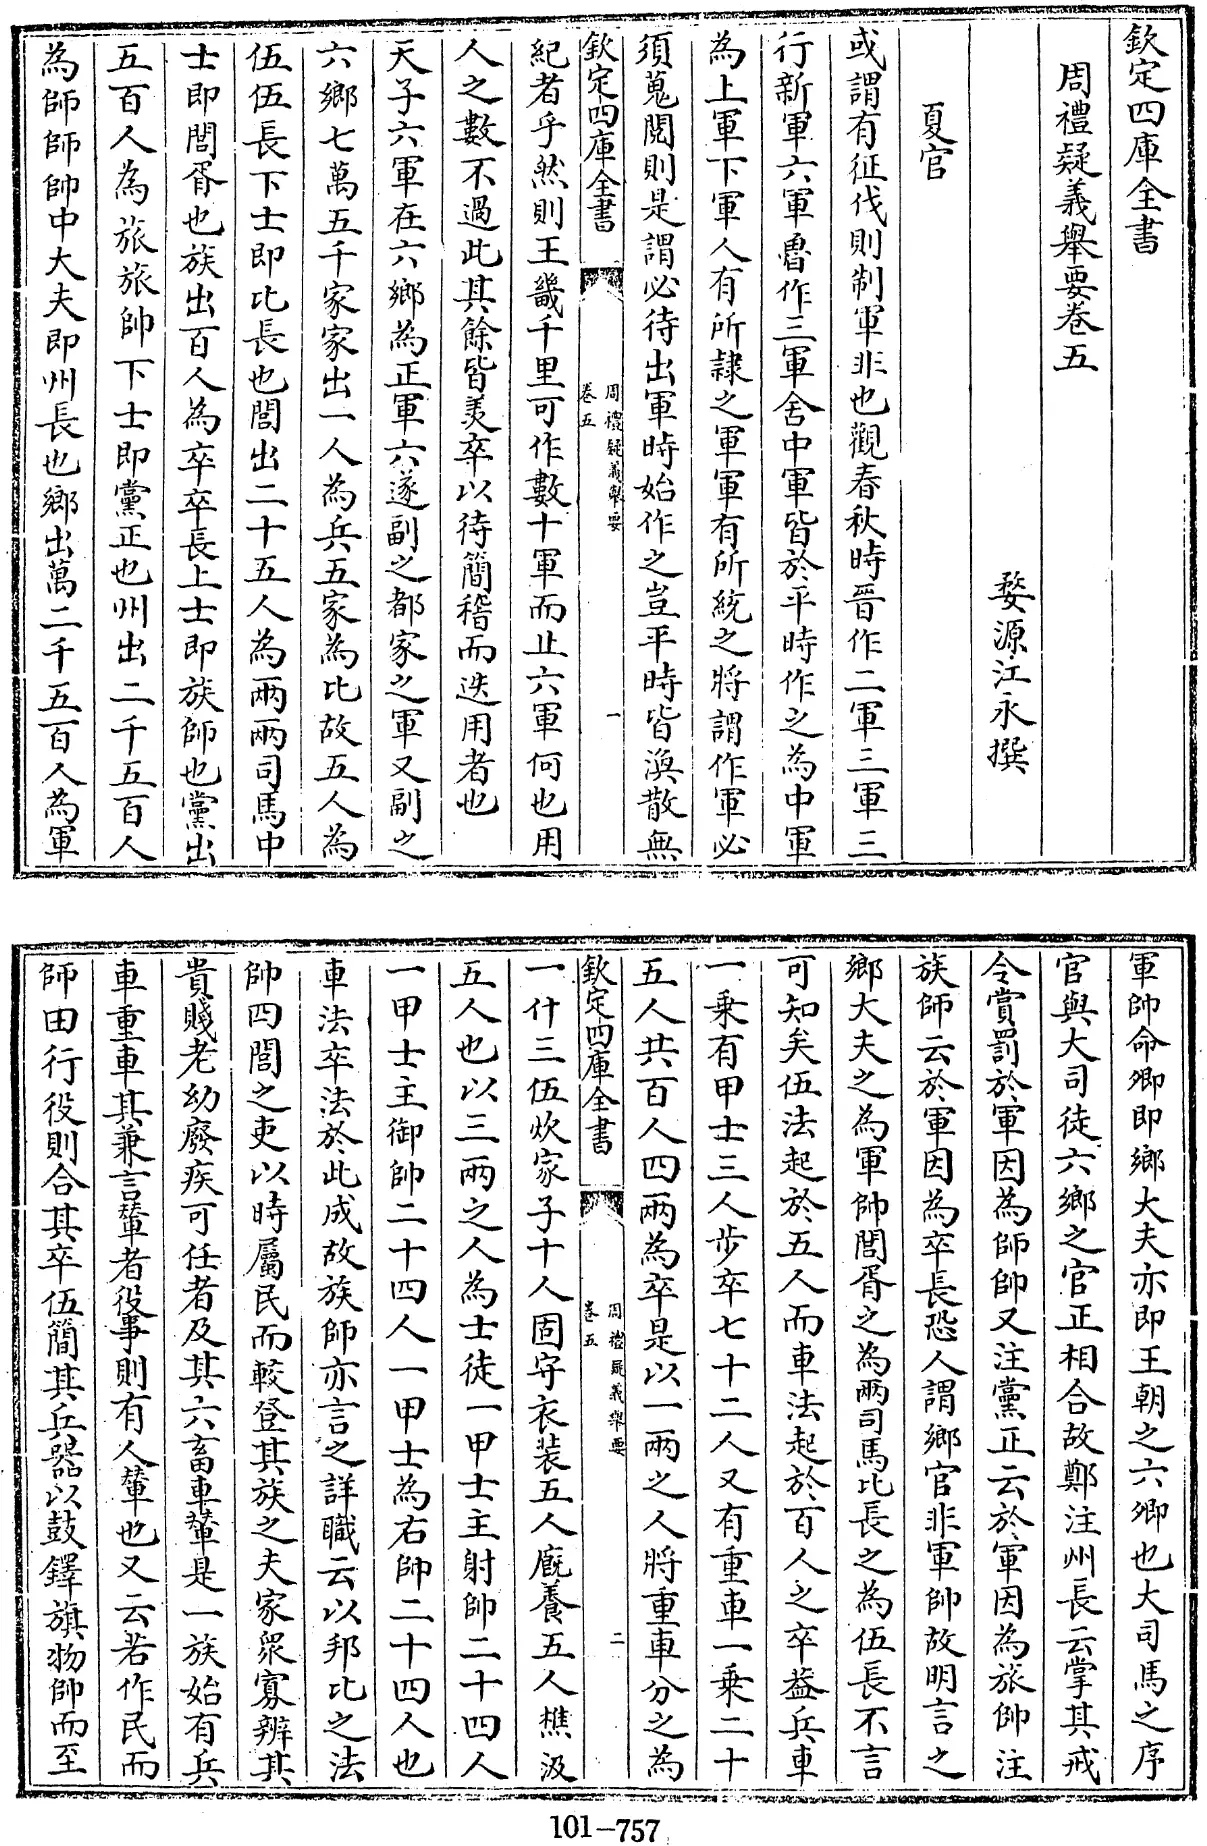 欽定四庫全書
周禮疑義舉要卷五
婺源江永撰
夏官
或謂有征伐則制軍非也觀春秋時晉作二軍三軍三
行新軍六軍魯作三軍舍中軍皆於平時作之為中軍
為上軍下軍人有所隸之軍軍有所統之將謂作軍必
須蒐閱則是謂必待出軍時始作之豈平時皆渙散無
欽定四庫全書
周禮疑義舉要
卷五
一
紀者乎然則王畿千里可作數十軍而止六軍何也用
人之數不過此其餘皆羡卒以待簡稽而迭用者也
天子六軍在六鄉為正軍六遂副之都家之軍又副之
六鄉七萬五千家家出一人為兵五家為比故五人為
伍伍長下士即比長也閭出二十五人為兩兩司馬中
士即閭胥也族出百人為卒卒長上士即族師也黨出
五百人為旅旅帥下士即黨正也州出二千五百人
為師師帥中大夫即州長也鄉出萬二千五百人為軍
軍帥命卿即鄉大夫亦即王朝之六卿也大司馬之序
官與大司徒六鄉之官正相合故鄭注州長云掌其戒
令賞罰於軍因為師帥又注黨正云於軍因為旅帥注
族師云於軍因為卒長恐人謂鄉官非軍帥故明言之
鄉大夫之為軍帥閭胥之為兩司馬比長之為伍長不言
可知矣伍法起於五人而車法起於百人之卒葢兵車
一乗有甲士三人步卒七十二人又有重車一乗二十
五人共百人四兩為卒是以一兩之人將重車分之為
欽定四庫全書
周禮疑義舉要
卷五
二
一什三伍炊家子十人固守衣裝五人廐養五人樵汲
五人也以三兩之人為士徒一甲士主射帥二十四人
一甲士主御帥二十四人一甲士為右帥二十四人也
車法卒法於此成故族師亦言之詳職云以邦比之法
帥四閭之吏以時屬民而較登其族之夫家衆寡辨其
貴賤老幼廢疾可任者及其六畜車輦是一族始有兵
車重車其兼言輦者役事則有人輦也又云若作民而
師田行役則合其卒伍簡其兵器以鼓鐸旗物帥而至
101-757